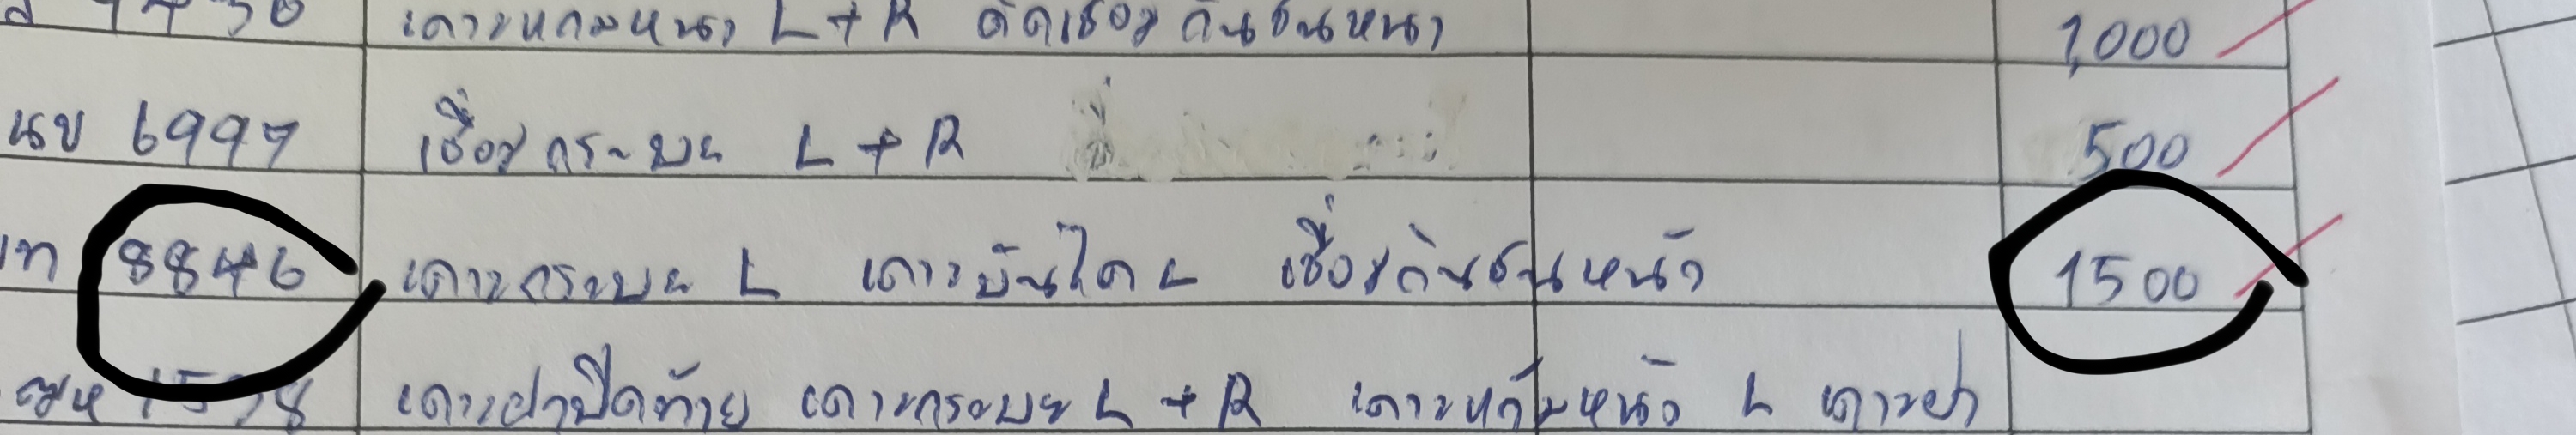 เคาะแก้มหน้า L + R ตัดเชื่อมกันชนหน้า 1,000
นข 6997 เชื่อมกระบะ L + R 500
8846 เคาะกระบะ L เคาะบันได L เชื่อมกันชนหน้า 1500
ฒห 1598 เคาะฝาปิดท้าย เคาะกระบะ L + R เคาะแก้มหน้า L เคาะฝา